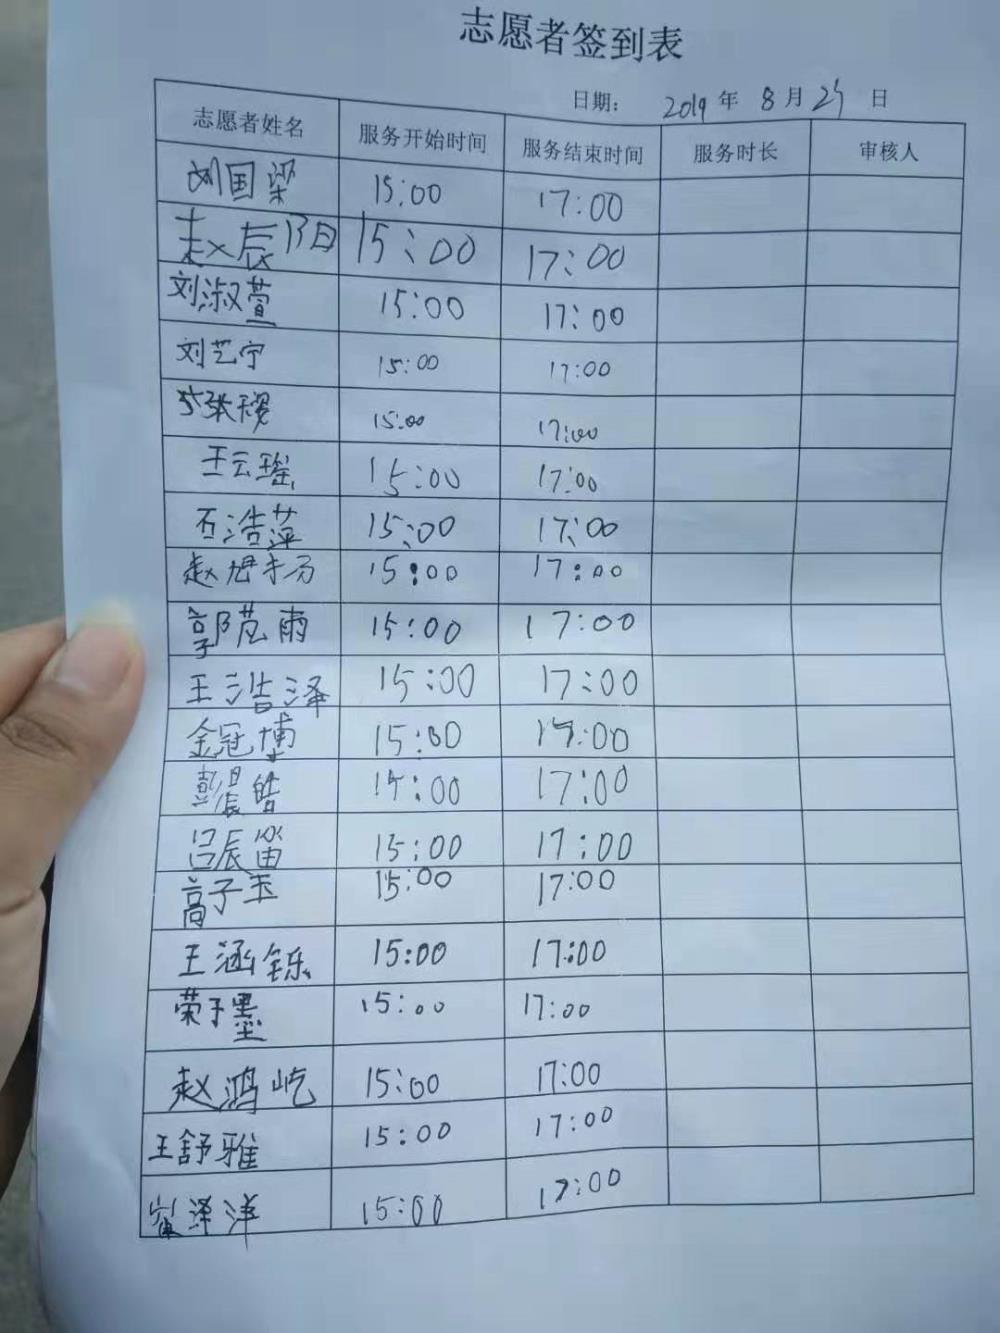 志愿者签到表
日期： 2019 年 8 月 25 日
志愿者姓名 服务开始时间 服务结束时间 服务时长 审核人
刘国梁 15:00 17:00
赵辰阳 15:00 17:00
刘淑萱 15:00 17:00
刘艺宁 15:00 17:00
15:00 17:00
王云瑶 15:00 17:00
石浩萍 15:00 17:00
赵 15:00 17:00
郭范雨 15:00 17:00
王浩泽 15:00 17:00
金冠博 15:00 17:00
彭晨皓 15:00 17:00
吕辰笛 15:00 17:00
高子玉 15:00 17:00
王涵铄 15:00 17:00
荣子墨 15:00 17:00
赵鸿屹 15:00 17:00
王舒雅 15:00 17:00
泽洋 15:00 17:00